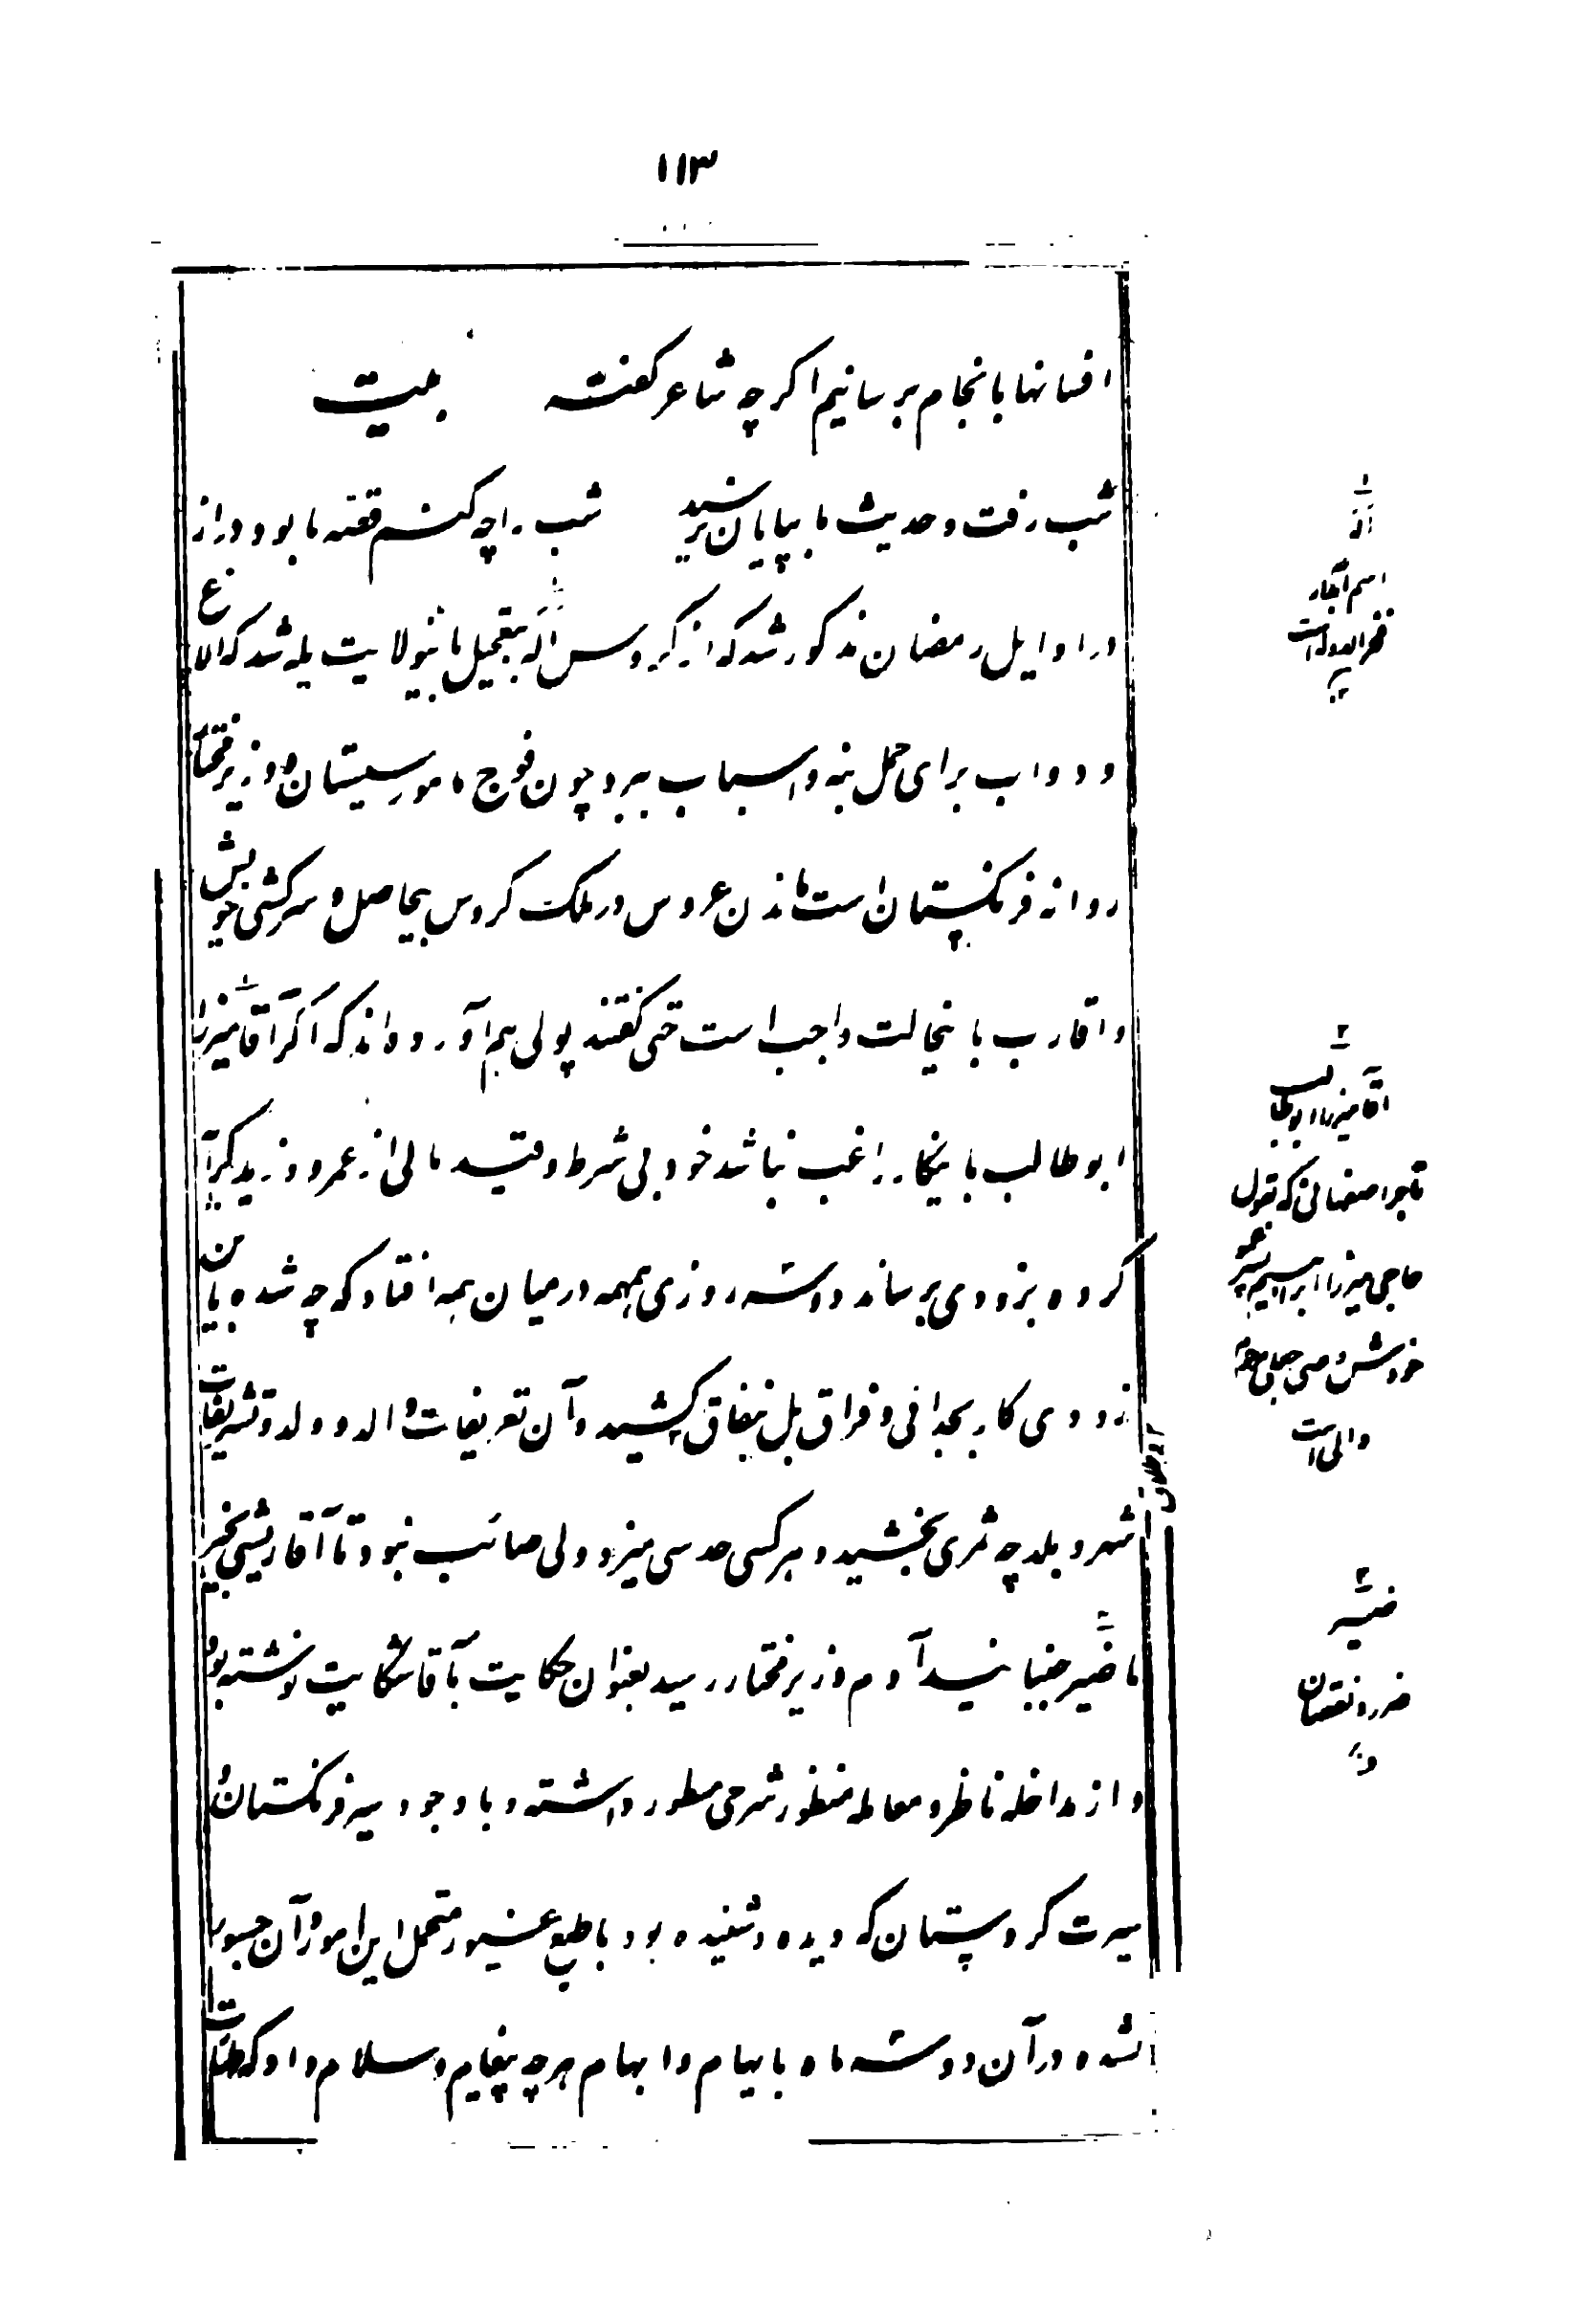 ۱۱۳
افسانها بانجام برسانیم اگرچه شاعر گفته بیت
شب رفت و حدیث ما بپایان نرسید شب را چه کنم قصّه ما بود دراز
در اوایل رمضان مذکور شد که از کروس اله بتعجیل باینولایت یله شد که الاغ
و دواب برای حمل بنه و اسباب ببرد چون فوج مامور سیستان و وزیر مختار
روانه فرنکستان است ماندن عروس در ملک کروس بیحاصل و سرکشی خویش
و اقارب باینحالت واجب است حتی گفتند پولی هم آورده اند که اگر آقا میرزا
ابوطالب باینکار راغب نباشد خود بی شرط و قید مالی از عمرو و زید کرآ
کرده بزودی برساند دو سه روزی همهمه در میان همه افتاد که چه شده باین
زودی کار بجدائی و فراق بل بنفاق کشید و آن تعریفات والد و ولد و تشریفات
شهر و بلد چه ثمری بخشید و هر کسی حدسی میزد ولی صائب نبود تا آقا ریشی بخیر
ما ضیر جنبانید آدم وزیر مختار رسید بعنوان حکایت بآقا شکایت نوشته بود
و از مداخله ناظر و معامله منظور شرحی مسطور داشته و با وجود سیر فرنکستان و
سیرت کروسستان که دیده و شنیده بود با طبع غیور متحمل این امور و آن جسور
نشده در آن دو سه ماه بایهام و ابهام هر چه پیغام و سلام داد که
اسم آبدار
فخرالدوله است
آقا میرزا ابوطالب
تاجر اصفهانی که بقول
حاجی میرزا ابراهیم
خودش و
والی است
ضیر
ضرر و نقصان